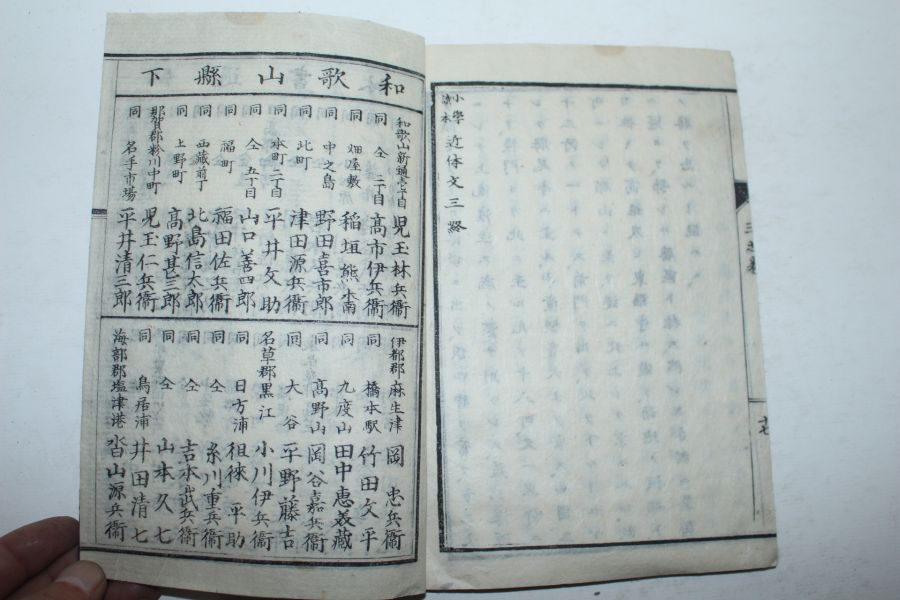 小學讀本 近体文三終
三之巻
十七
和歌山縣下
和歌山新通壱丁目 児玉林兵衞
同 仝 二丁目 髙市伊兵衞
同 畑屋敷 稲垣熊楠
同 中之島 野田喜市郎
同 北町 津田源兵衞
同 本町二丁目 平井文助
同 仝 五丁目 山口善四郎
同 福町 福田佐兵衞
同 西蔵前丁 北島信太郎
同 上野町 髙野甚三郎
那賀郡粉川中町 児玉仁兵衞
同 名手市場 平井清三郎
伊都郡麻生津 岡 忠兵衞
同 橋本駅 竹田文平
同 九度山 田中恵義蔵
同 髙野山 岡谷嘉兵衞
同 大谷 平野藤吉
名草郡黒江 小川伊兵衞
同 日方浦 徂徠平助
同 仝 糸川重兵衞
同 仝 吉本武兵衞
同 仝 山本久七
同 鳥居浦 井田清七
海部郡塩津港 沓山源兵衞